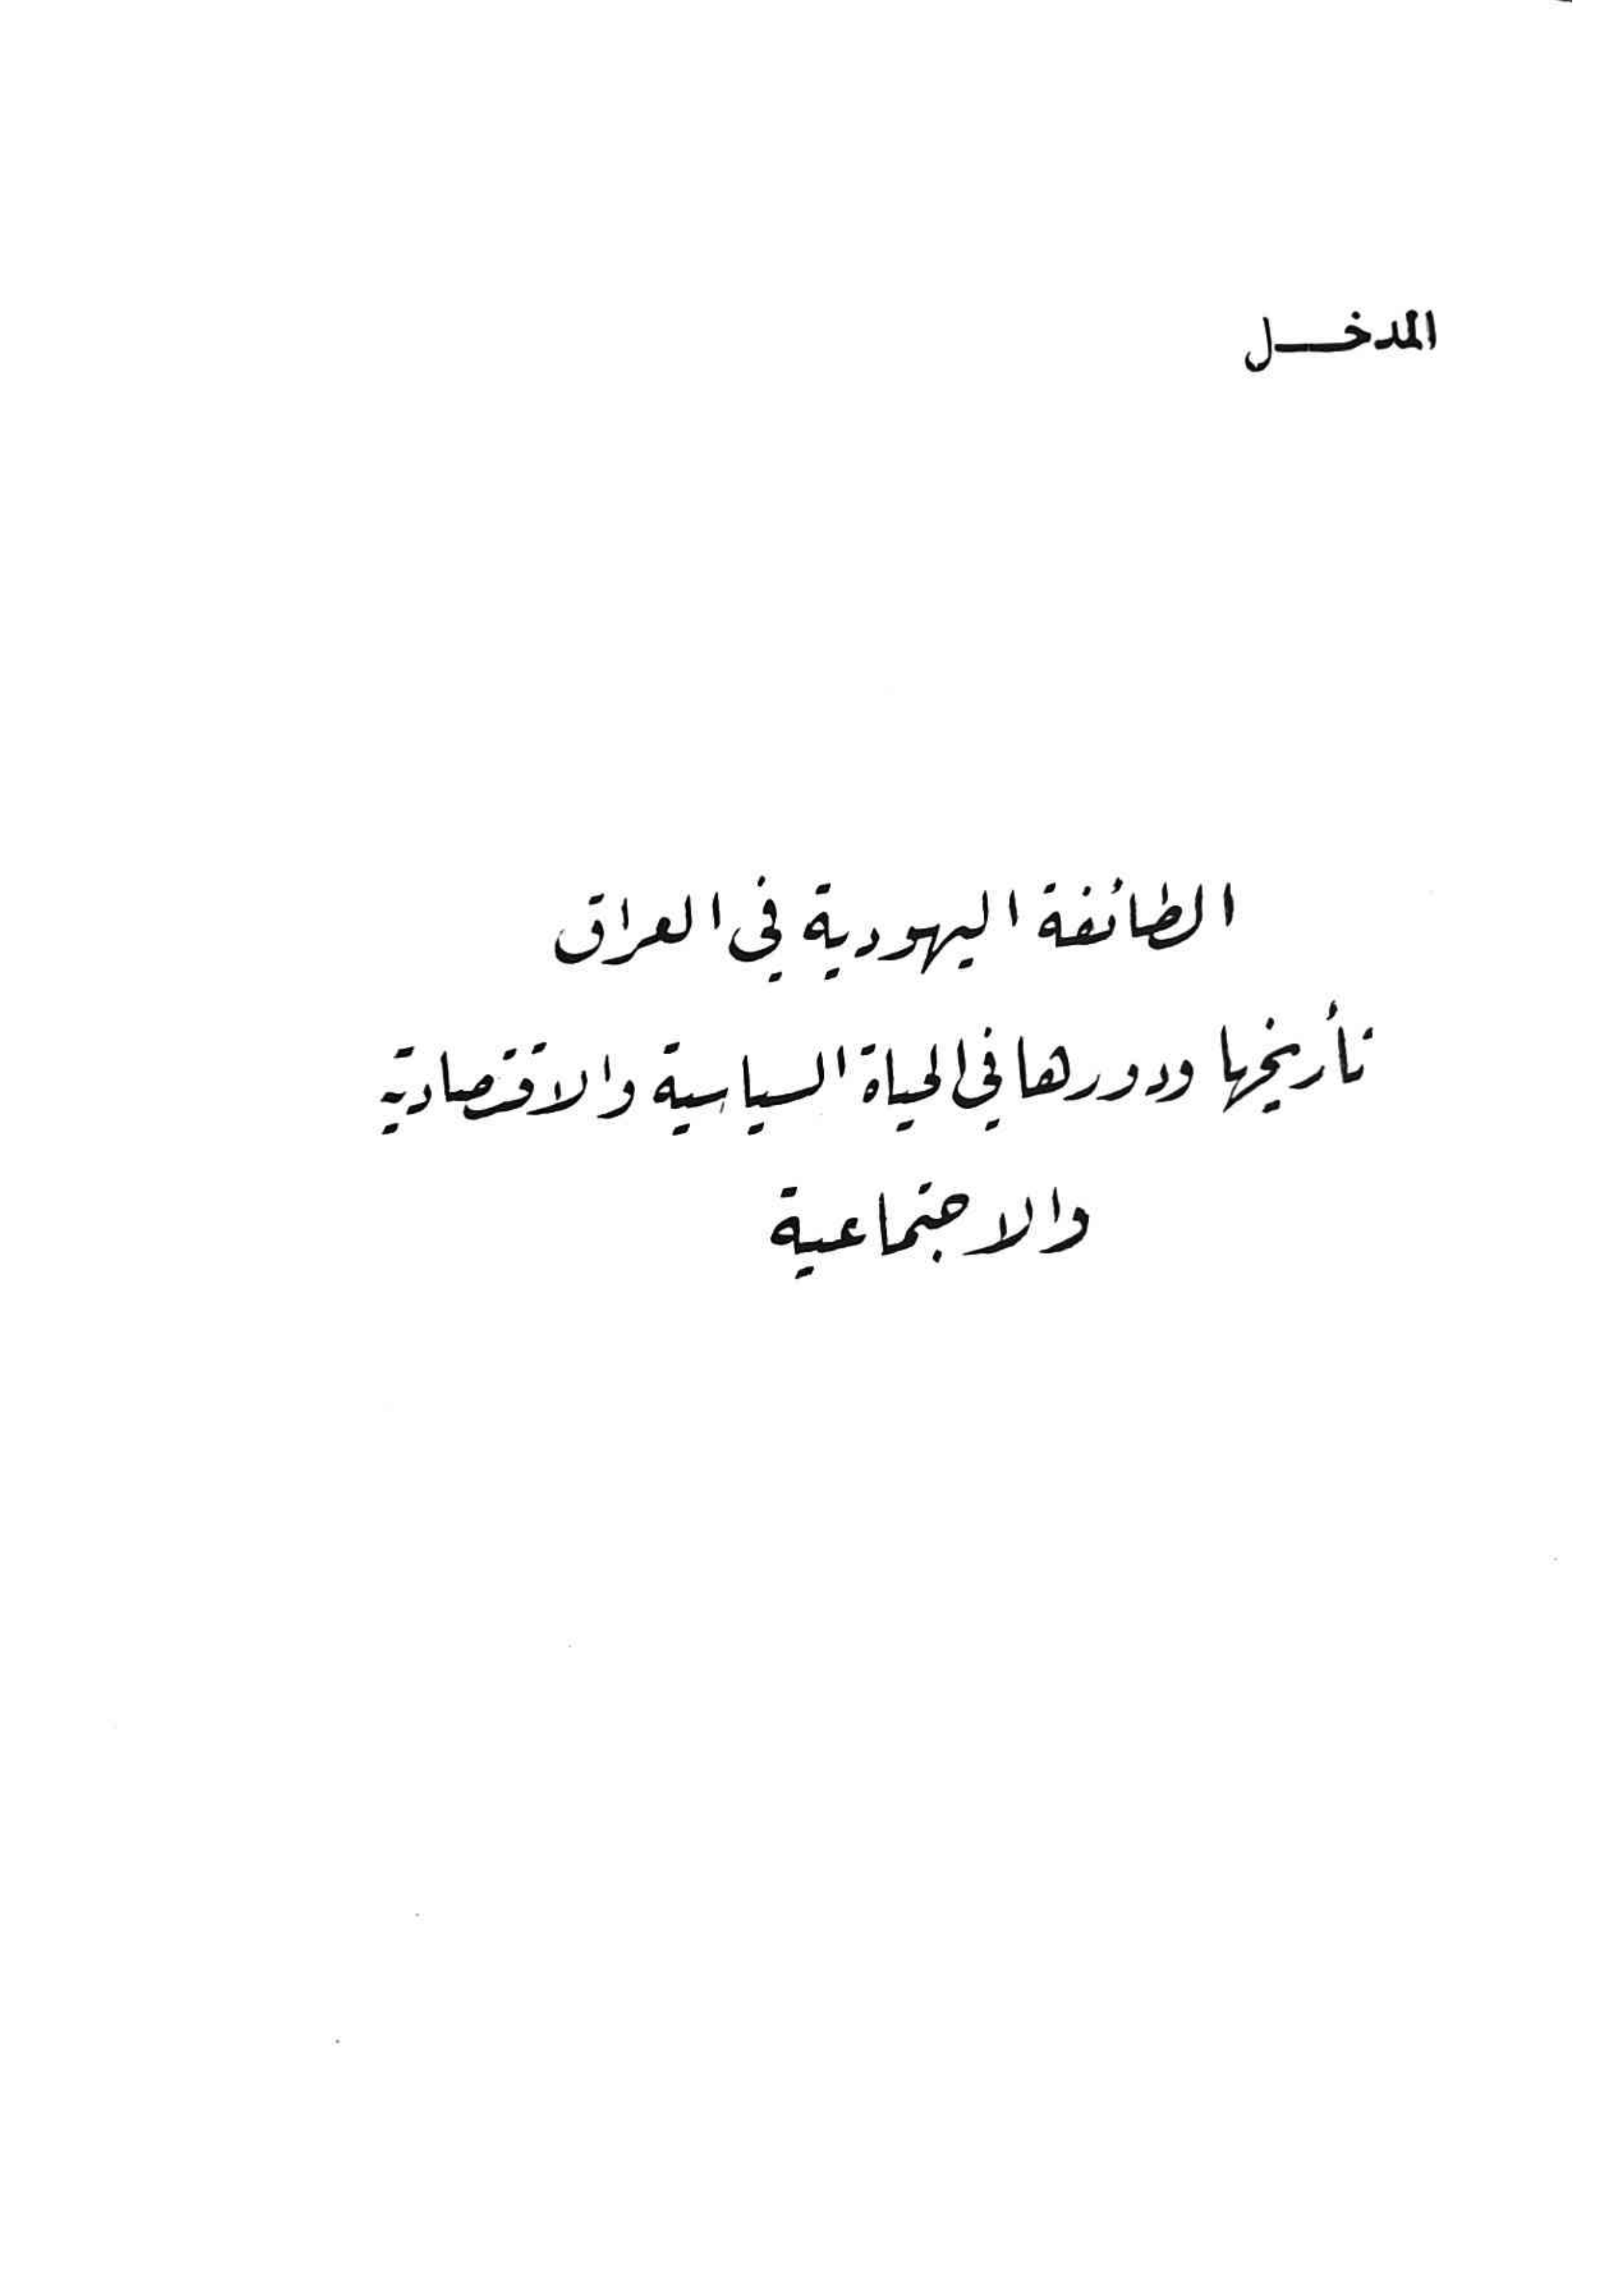 المدخـــل
الطائفة اليهودية في العراق
تأريخها ودورها في الحياة السياسية والاقتصادية
والاجتماعية